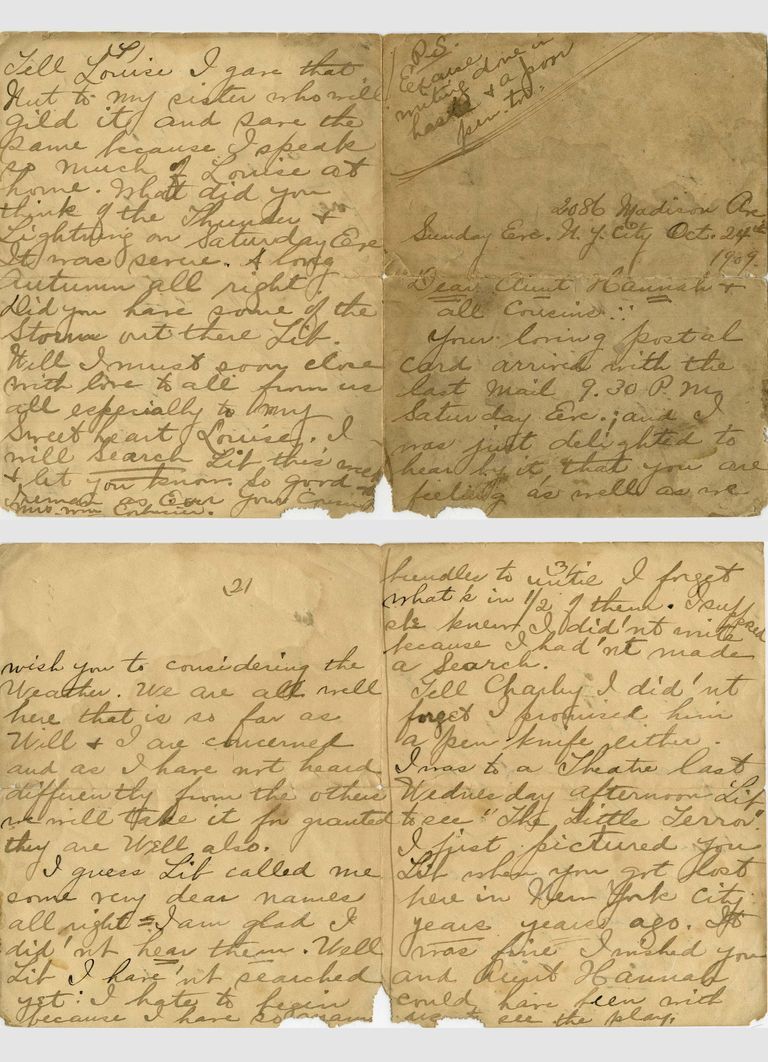 P.S.
Excuse
writing done in
haste & a poor
pen. too.
2086 Madison Ave
Sunday Eve. N.Y. City Oct. 24th
1909.
Dear Aunt Hannah &
all Cousins!:
Your loving postal
card arrived with the
last Mail 9.30 P.M.
Saturday Eve.; and I
was just delighted to
hear by it that you are
feeling as well as we
2/
wish you to considering the
Weather. We are all well
here that is so far as
Will & I are concerned
and as I have not heard
differently from the others
we will take it for granted
they are Well also.
I guess Lib called me
some very dear names
all right = I am glad I
did'nt hear them. Well
Lib I have'nt searched
yet: I hate to begin
because I have so many
3/
bundles to until I forget
what's in 1/2 of them. I supposed
she knew I did'nt write
because I had'nt made
a Search.
Tell Charley I did'nt
forget I promised him
a pen knife either.
I was to a Theatre last
Wednesday afternoon Lib
to see "The Little Terror".
I just pictured you
Lib when you got lost
here in New York City
years years ago. It
was fine I wished you
and Aunt Hannah
could have been with
see the play.
4
Tell Louise I gave that
Nut to my sister who will
gild it and save the
same because I speak
so much of Louise at
home. What did you
think of the Thunder &
Lightning on Saturday Eve
It was serve. A long
Autumn all right
Did you have some of the
Storm out there Lib.
Well I must soon close
with love to all from us
all especially to my
Sweet heart Louise. I
will Search Lib this week
& let you know. So good
I remain as Ever Your Cousin
Mrs. Wm